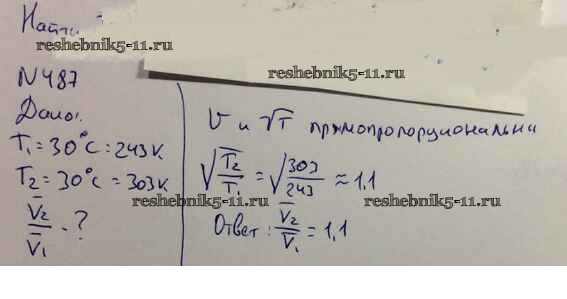 Найти
reshebnik5-11.ru
reshebnik5-11.ru
N487
Дано:
T₁ = 30°C = 243K
T₂ = 30°C = 303K
V̅₂/V̅₁ - ?
V и √T прямопропорциональны
√(T₂/T₁) = √(303/243) ≈ 1,1
reshebnik5-11.ru
reshebnik5-11.ru
Ответ: V̅₂/V̅₁ = 1,1